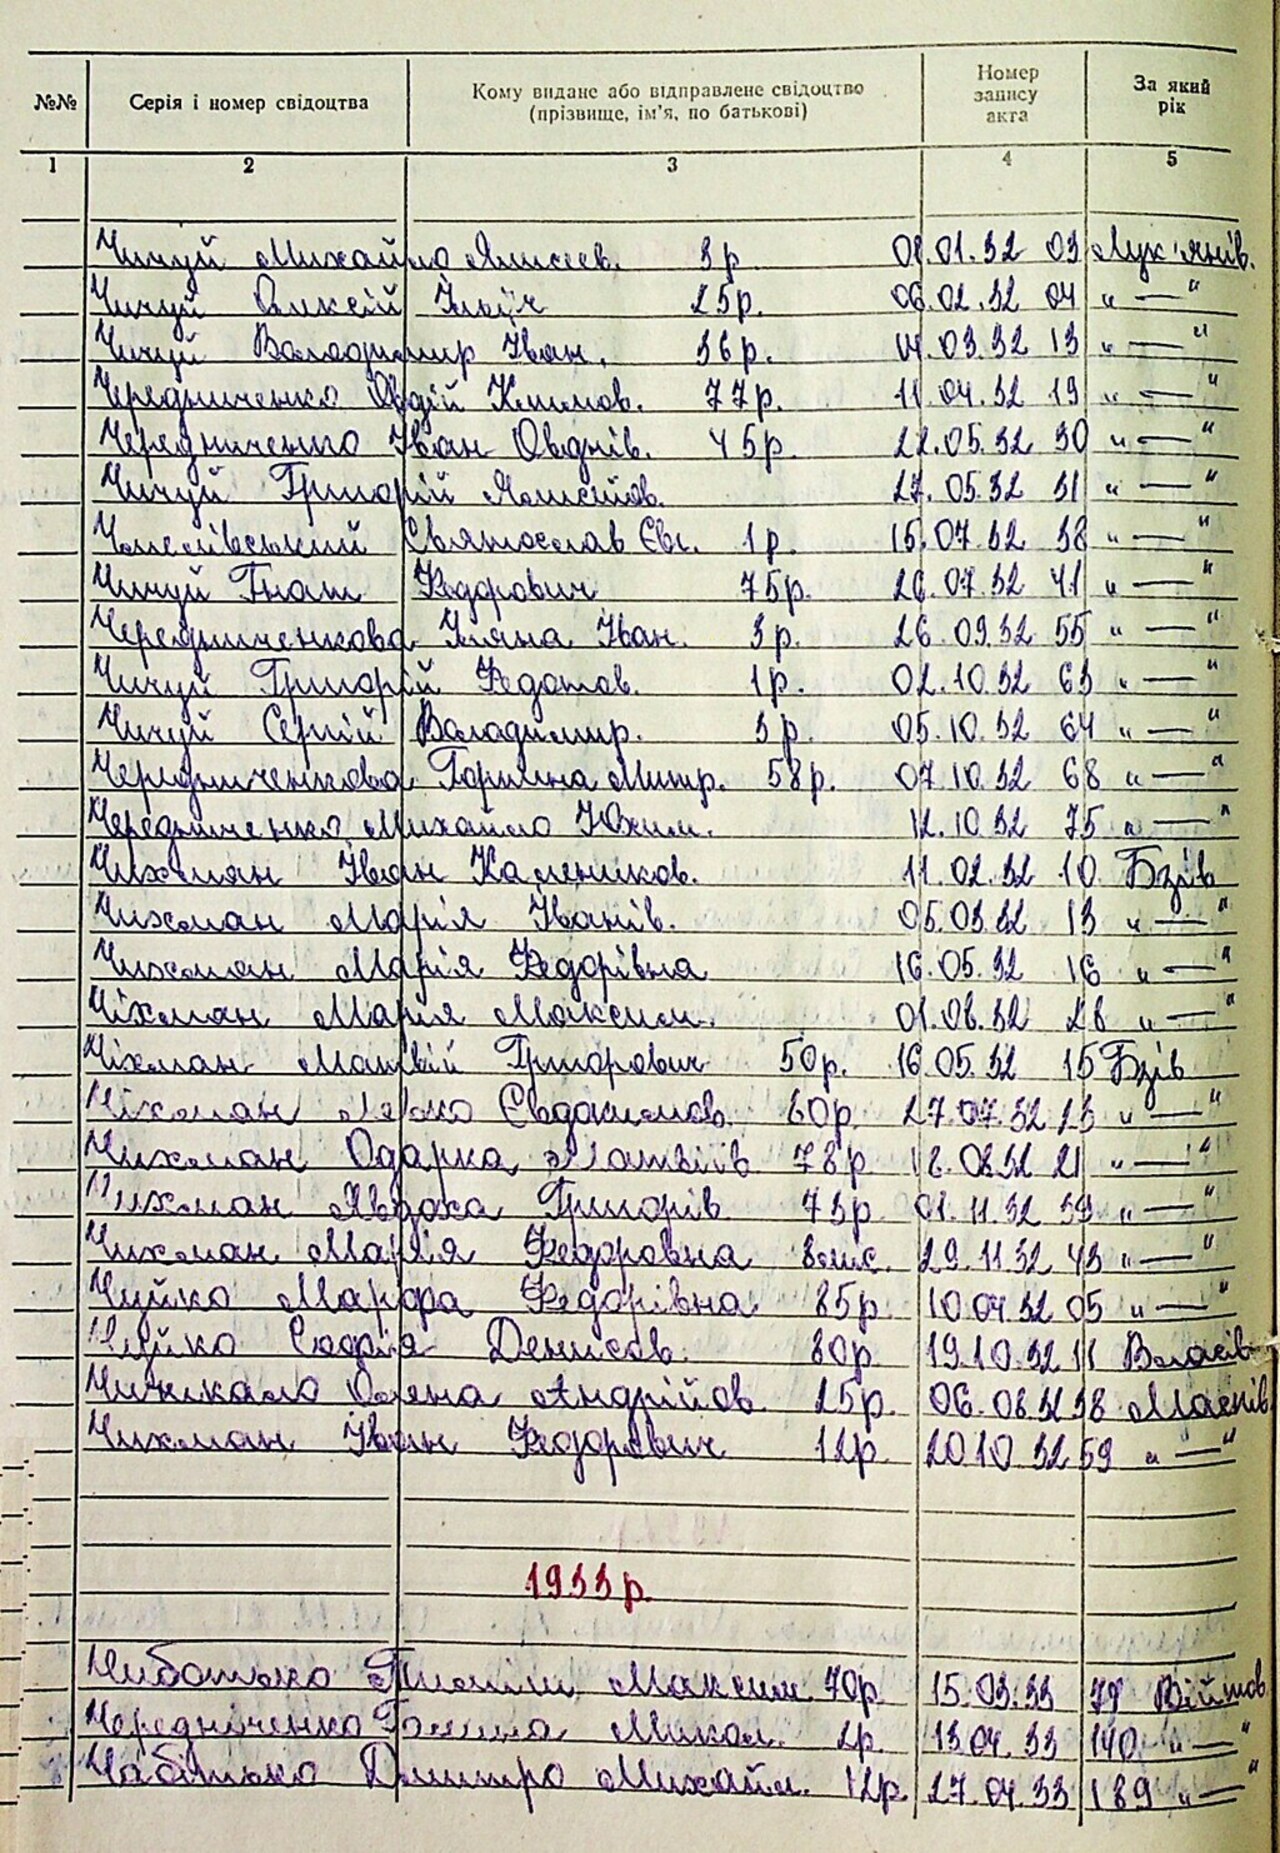 №№ Серія і номер свідоцтва Кому видане або відправлене свідоцтво (прізвище, ім'я, по батькові) Номер запису акта За який рік
1 2 3 4 5
Чичуй Михайло 3р 01.32 03 Лук'янів.
Чичуй Олексій Ілліч 25р. 06.02.32 04 " — "
Чичуй Володимир Іван. 36р. 03.32 13 " — "
Чередниченко Овдій Климов. 77р. 11.04.32 19 " — "
Чередниченко Іван Овдіїв. 45р. 22.05.32 30 " — "
Чичуй Григорій 27.05.32 31 " — "
Святослав Євг. 1р. 15.07.32 38 " — "
Чичуй Гнат Федорович 75р. 26.07.32 41 " — "
Чередниченкова Уляна Іван. 3р. 26.09.32 55 " — "
Чичуй Григорій Федотов. 1р. 02.10.32 63 " — "
Чичуй Сергій Володимир. 3р. 05.10.32 64 " — "
Чередниченкова Горпина Митр. 58р. 07.10.32 68 " — "
Чередниченко Михайло Юхим. 12.10.32 75 " — "
Чихман Іван Калеников. 11.02.32 10 Бзів
Чихман Марія Іванів. 05.03.32 13 " — "
Чихман Марія Федорівна 16.05.32 16 " — "
Чіхман Марія Максим. 28 " — "
Чіхман Матвій Григорович 50р. 16.05.32 15 Бзів
Чіхман Марко Євдокимов. 60р. 27.07.32 23 " — "
Чихман Одарка Матвіїв 78р 21 " — "
Чихман Явдоха Григорів 73р 01.11.32 39 " — "
Чихман Марія Федоровна 8міс. 29.11.32 43 " — "
Чуйко Марфа Федорівна 85р. 10.04.32 05 " — "
Чуйко Софія Денисов. 80р 19.10.32 11 Власів
Чичикало Олена Андрійов. 25р. 06.08.32 38 Масків
Чихман Іван Федорович 12р. 20.10.32 59 " — "
1933р.
Чиботько Пилип Максим. 70р. 15.03.33 79 Війтов.
Чередніченко Галина Микол. 2р. 13.04.33 140 " — "
Чаботько Дмитро Михайл. 12р. 27.04.33 189 " — "